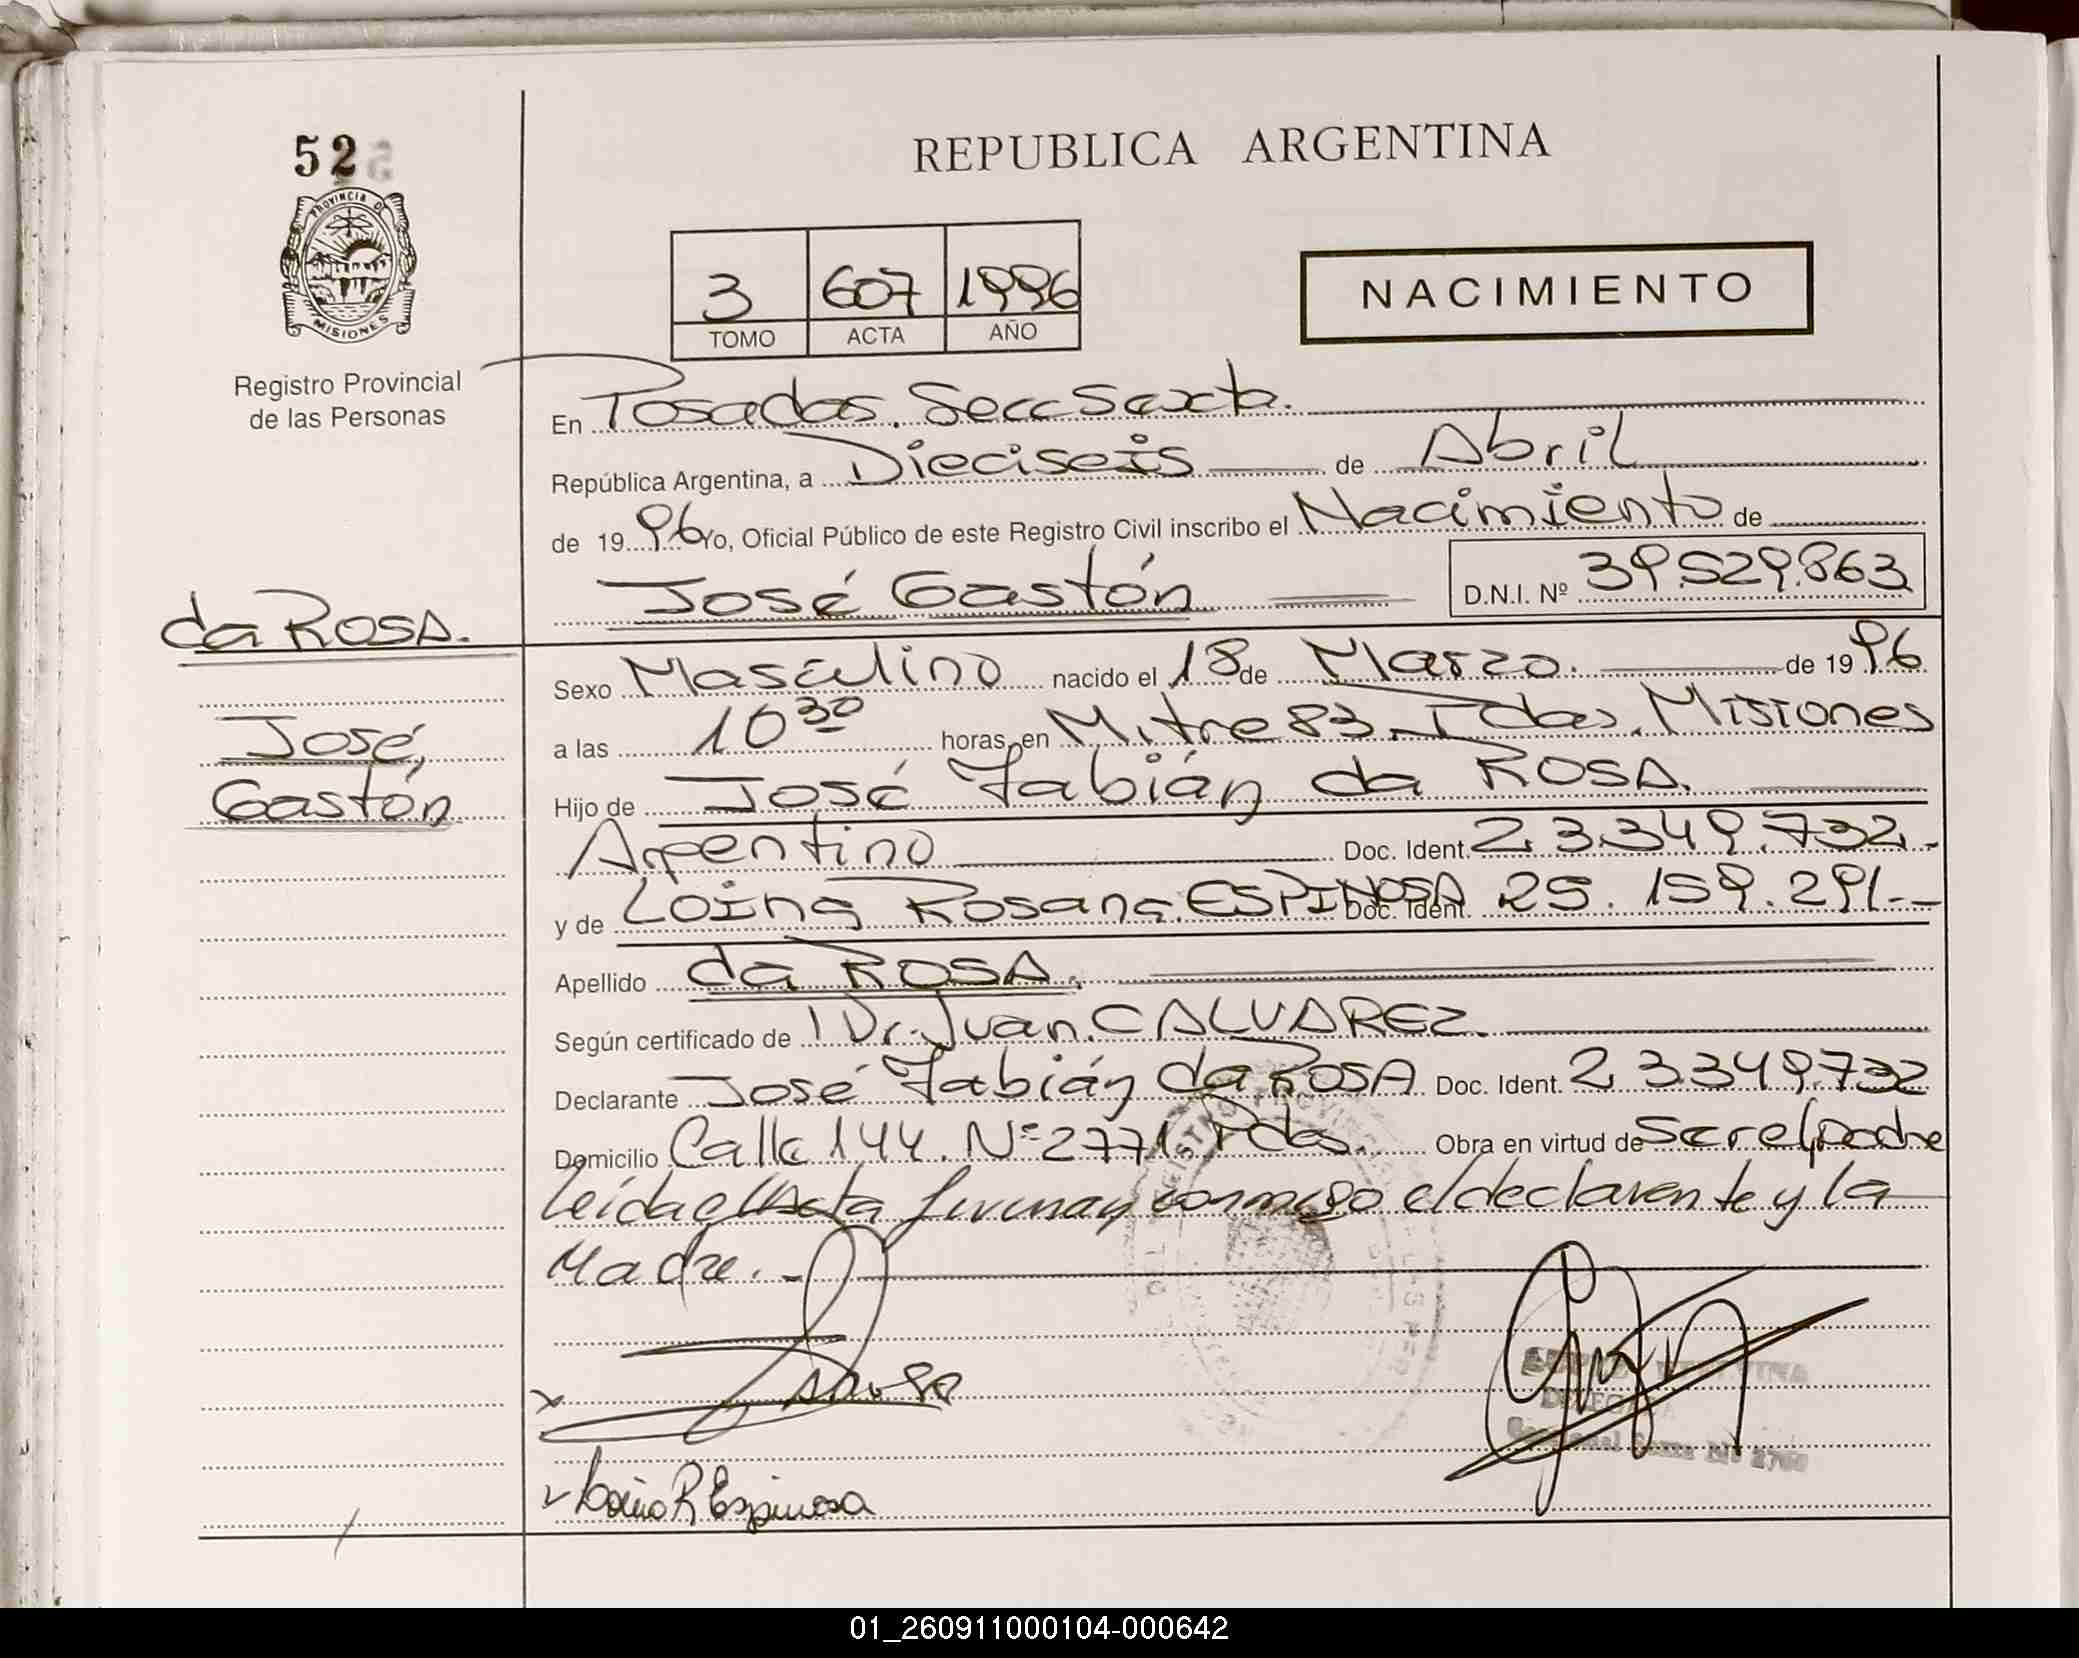 52
PROVINCIA DE
MISIONES
Registro Provincial
de las Personas
REPUBLICA ARGENTINA
3 607 1996
TOMO ACTA AÑO
NACIMIENTO
En Posadas. Secc Sexta.
República Argentina, a Dieciseis de Abril
de 1996 Yo, Oficial Público de este Registro Civil inscribo el Nacimiento de
José Gastón D.N.I. Nº 39.529.863
da ROSA.
José,
Gastón
Sexo Masculino nacido el 18 de Marzo. de 1996
a las 10 30 horas, en Mitre 83. Pdas. Misiones
Hijo de José Fabián da ROSA.
Argentino Doc. Ident. 23.349.732.-
y de Rosana ESPINOSA Doc. Ident. 25.159.291.-
Apellido da ROSA.
Según certificado de Dr. Juan C ALVAREZ.
Declarante José Fabián da ROSA Doc. Ident. 23349732
Domicilio Calle 144. Nº 2771 Pdas. Obra en virtud de Ser el padre
Leida el Acta firman conmigo el declarante y la
Madre.-
R Espinosa
01_260911000104-000642